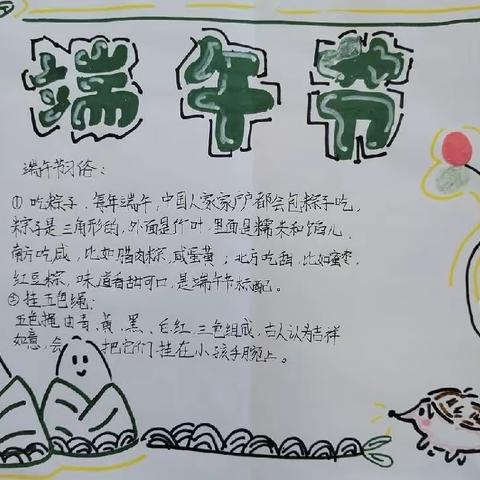 端午节
端午节习俗:
①吃粽子,每年端午,中国人家家户户都会包粽子吃,
粽子是三角形的,外面是竹叶,里面是糯米和馅儿,
南方吃咸,比如腊肉粽,咸蛋黄;北方吃甜,比如蜜枣,
红豆粽,味道香甜可口,是端午节标配。
②挂五色绳:
五色绳由青、黄、黑、白、红三色组成,古人认为吉祥
如意,会 把它们挂在小孩手腕上。